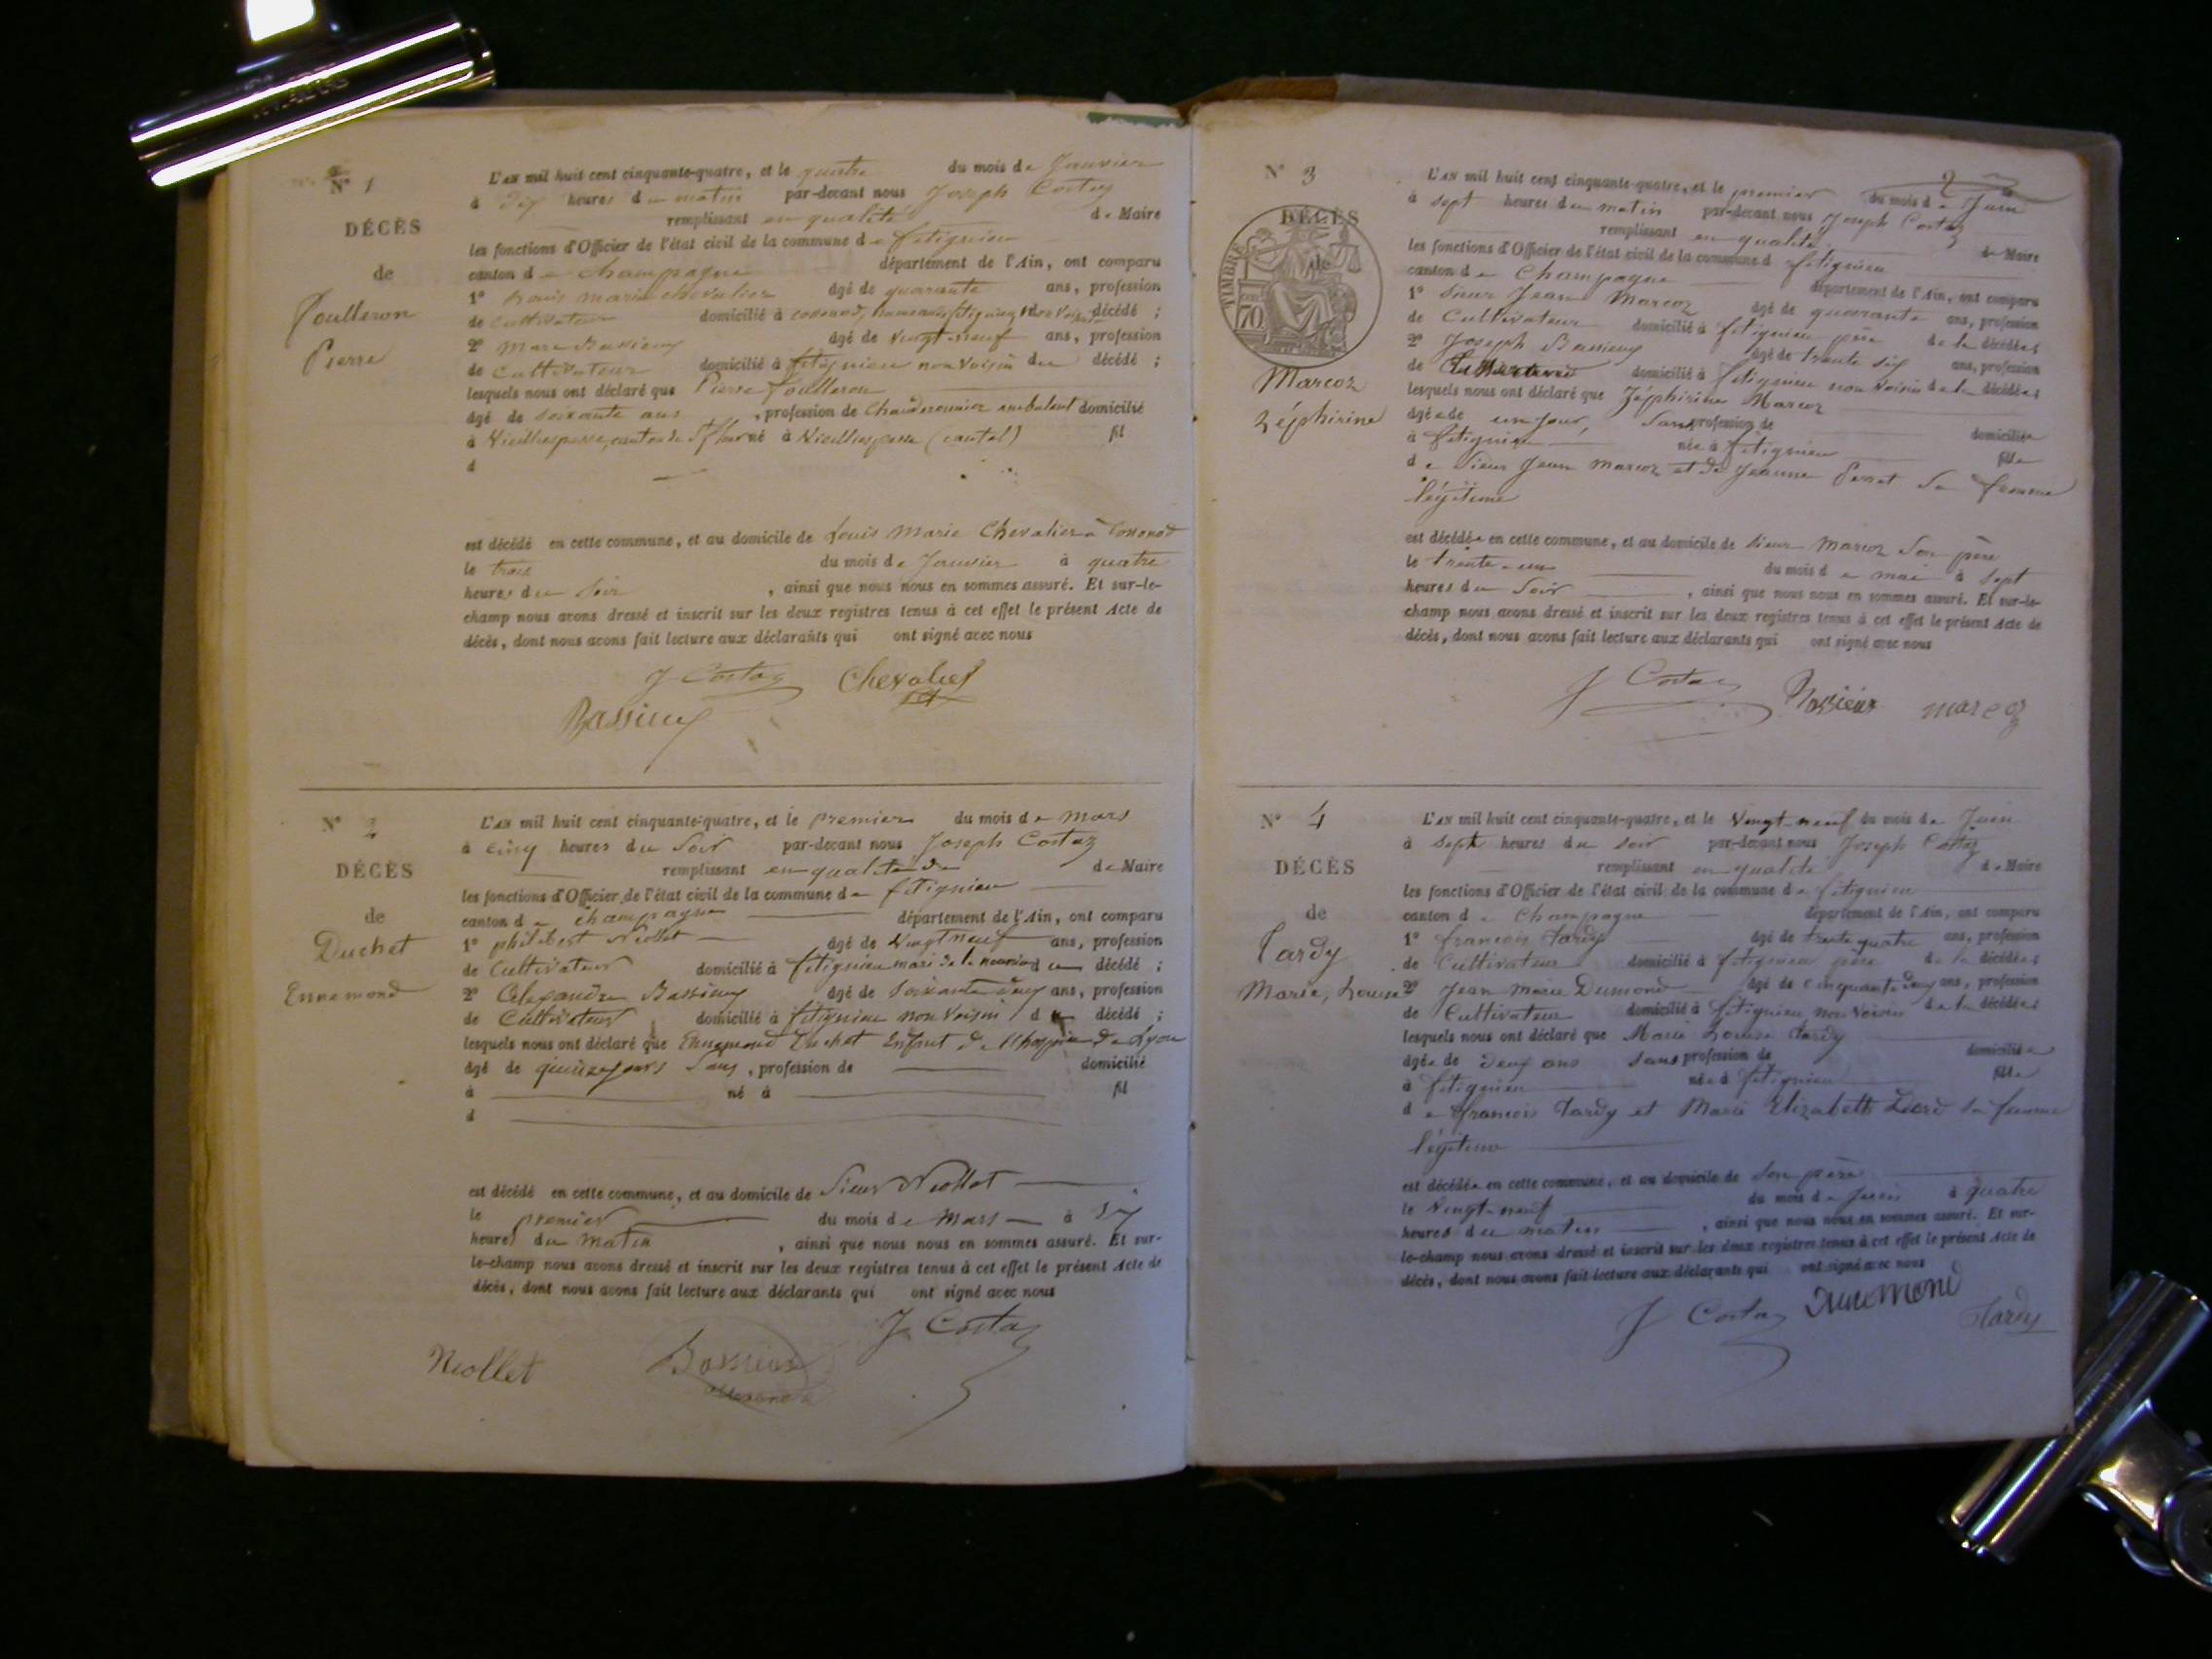 N° 1
DÉCÈS
de
Pierre
L'AN mil huit cent cinquante-quatre, et le quatre du mois de Janvier
à dix heures du matin par-devant nous Joseph Costaz
remplissant en qualité de Maire
les fonctions d'Officier de l'état civil de la commune de fitignieu
canton de Champagne département de l'Ain, ont comparu
1° Louis marie chevalier âgé de quarante ans, profession
de cultivateur domicilié à décédé ;
2° Marc Bassieux âgé de vingt-neuf ans, profession
de cultivateur domicilié à fitignieu non voisin du décédé ;
lesquels nous ont déclaré que Pierre
âgé de soixante ans, profession de Chaudronnier ambulant domicilié
à Vieillespesse, canton de St flour né à Vieillespesse (cantal) fil
d
est décédé en cette commune, et au domicile de Louis Marie Chevalier à
le trois du mois de Janvier à quatre
heures du Soir, ainsi que nous nous en sommes assuré. Et sur-le-
champ nous avons dressé et inscrit sur les deux registres tenus à cet effet le présent Acte de
décès, dont nous avons fait lecture aux déclarants qui ont signé avec nous
J Costaz Chevalier
Bassieux
N° 2
DÉCÈS
de
Duchet
Ennemond
L'AN mil huit cent cinquante-quatre, et le premier du mois de mars
à cinq heures du Soir par-devant nous Joseph Costaz
remplissant en qualité de de Maire
les fonctions d'Officier de l'état civil de la commune de fitignieu
canton de champagne département de l'Ain, ont comparu
1° philibert Niollet âgé de vingt neuf ans, profession
de Cultivateur domicilié à fitignieu mari de la décédé ;
2° Alexandre Bassieux âgé de soixante deux ans, profession
de Cultivateur domicilié à fitignieu non voisin d décédé ;
lesquels nous ont déclaré que Ennemond Duchet Enfant de l'hospice de Lyon
âgé de quinze jours Sans, profession de domicilié
à né à fil
d
est décédé en cette commune, et au domicile de Sieur Niollet
le premier du mois de Mars à six
heures du Matin, ainsi que nous nous en sommes assuré. Et sur-
le-champ nous avons dressé et inscrit sur les deux registres tenus à cet effet le présent Acte de
décès, dont nous avons fait lecture aux déclarants qui ont signé avec nous
J Costaz
Niollet Bassieux
2
N° 3
DÉCÈS
de
TIMBRE
70
Marcoz
Zéphirine
L'AN mil huit cent cinquante-quatre, et le premier du mois de Juin
à sept heures du matin par-devant nous Joseph Costaz
remplissant en qualité de Maire
les fonctions d'Officier de l'état civil de la commune d fitignieu
canton de Champagne département de l'Ain, ont comparu
1° Sieur Jean Marcoz âgé de quarante ans, profession
de Cultivateur domicilié à fitignieu père de la décédée
2° Joseph Bassieux âgé de trente six ans, profession
de domicilié à fitignieu non voisin de la décédée
lesquels nous ont déclaré que Zéphirine Marcoz
âgée de un jour, Sans profession de domiciliée
à fitignieu née à fitignieu fille
de Sieur Jean Marcoz et de Jeanne Perret sa femme
légitime
est décédée en cette commune, et au domicile de Sieur Marcoz Son père
le trente-un du mois de mai à Sept
heures du Soir, ainsi que nous nous en sommes assuré. Et sur-le-
champ nous avons dressé et inscrit sur les deux registres tenus à cet effet le présent Acte de
décès, dont nous avons fait lecture aux déclarants qui ont signé avec nous
J Costaz Bassieux marcoz
N° 4
DÉCÈS
de
Tardy
Marie, Louise
L'AN mil huit cent cinquante-quatre, et le Vingt-neuf du mois de Juin
à Sept heures du soir par-devant nous Joseph Costaz
remplissant en qualité de Maire
les fonctions d'Officier de l'état civil de la commune de fitignieu
canton de Champagne département de l'Ain, ont comparu
1° françois Tardy âgé de trente quatre ans, profession
de Cultivateur domicilié à fitignieu père de la décédée
2° Jean Marie Dumond âgé de cinquante deux ans, profession
de Cultivateur domicilié à fitignieu non voisin de la décédée
lesquels nous ont déclaré que Marie Louise Tardy
âgée de deux ans Sans profession de domiciliée
à fitignieu née à fitignieu fille
de françois Tardy et Marie Elizabeth sa femme
légitime
est décédée en cette commune, et au domicile de Son père
le Vingt-neuf du mois de Juin à quatre
heures du matin, ainsi que nous nous en sommes assuré. Et sur-
le-champ nous avons dressé et inscrit sur les deux registres tenus à cet effet le présent Acte de
décès, dont nous avons fait lecture aux déclarants qui ont signé avec nous
J Costaz Dumond Tardy